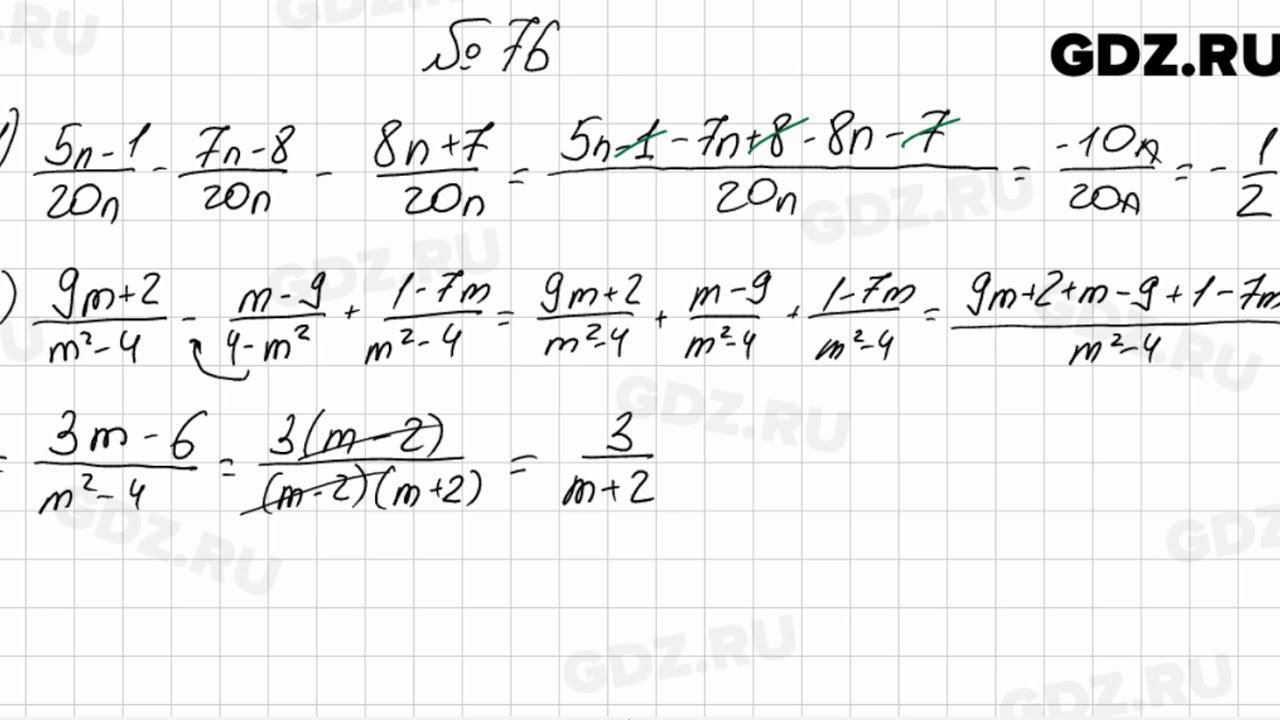 № 76
GDZ.RU
) (5n-1)/(20n) - (7n-8)/(20n) - (8n+7)/(20n) = (5n-1-7n+8-8n-7)/(20n) = (-10n)/(20n) = - 1/2
) (9m+2)/(m²-4) - (m-9)/(4-m²) + (1-7m)/(m²-4) = (9m+2)/(m²-4) + (m-9)/(m²-4) + (1-7m)/(m²-4) = (9m+2+m-9+1-7m)/(m²-4)
= (3m-6)/(m²-4) = (3(m-2))/((m-2)(m+2)) = 3/(m+2)